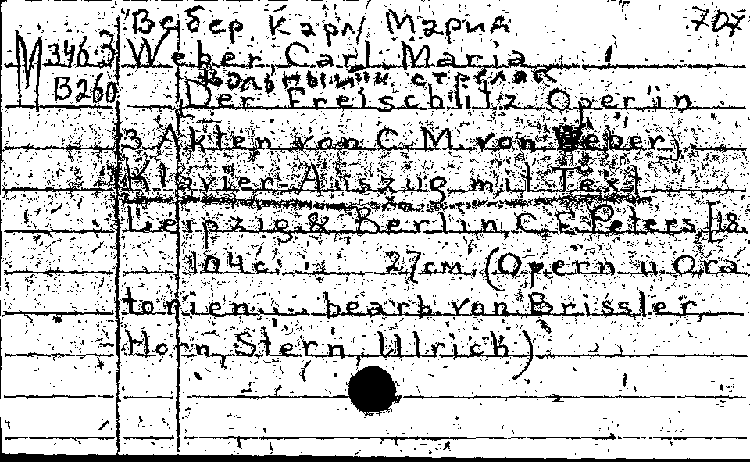 Вебер Карл Мария 707
М 346.3 Weber, Carl Maria
Вольный стрелок
В260 [Der Freischütz Oper in
3 Akten von C. M. von Weber)
Klavier-Auszug mit Text
Leipzig & Berlin, C. F. Peters, [18.
104 c. 27 cm. (Opern u Ora
torien... bearb. von Brissler,
Horn, Stern, Ulrich)